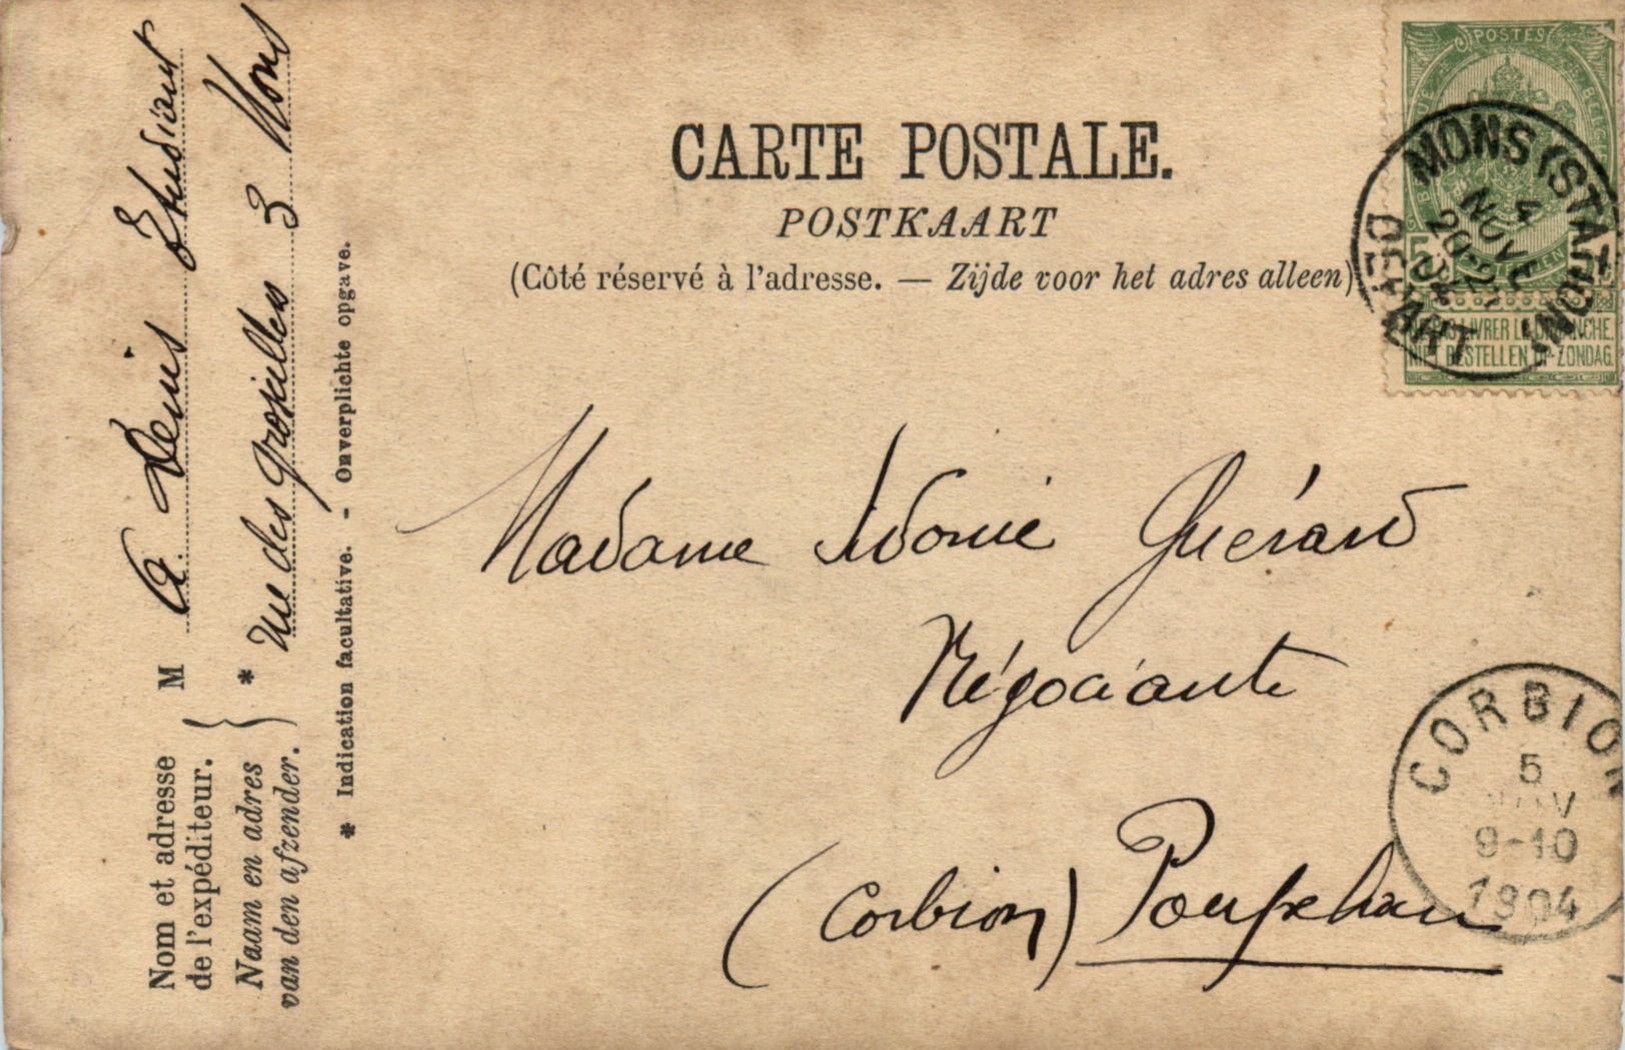 CARTE POSTALE.
POSTKAART
(Côté réservé à l'adresse. — Zijde voor het adres alleen)
POSTES
MONS (STATION)
4
NOVE
20-21
DEPART
5
NE PAS LIVRER LE DIMANCHE
NIET BESTELLEN OP ZONDAG
Madame Adonie Guérard
Négociante
(Corbion) Poupehan
CORBION
5
NOV
9-10
1904
Nom et adresse
de l'expéditeur.
Naam en adres
van den afzender.
M A Denis Etudiant
* rue des groseilles 3 Mons
* Indication facultative. - Onverplichte opgave.